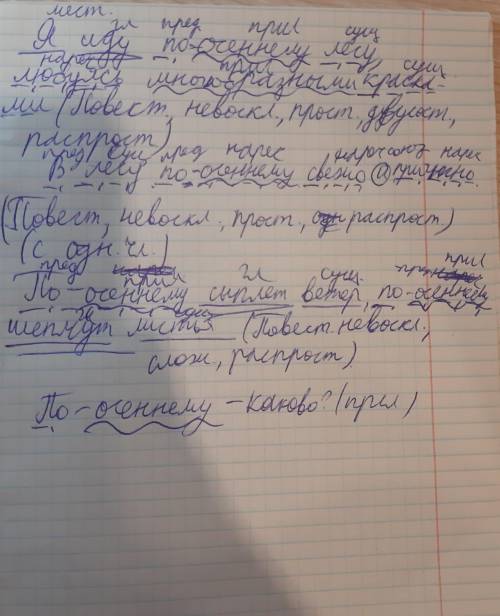 мест. гл пред прил сущ
Я иду по-осеннему лесу,
прил сущ
любуясь многообразными краска-
ми (Повест, невоскл., прост, двусост,
распрост)
пред сущ пред нареч союз нареч
В лесу по-осеннему свежо и
(Повест, невоскл., прост., распрост)
(с одн. чл.)
пред прил гл сущ. прил
По-осеннему сыплет ветер, по-осеннему
шепчут листья (Повест. невоскл.,
слож, распрост).
По-осеннему - каково? (прил)